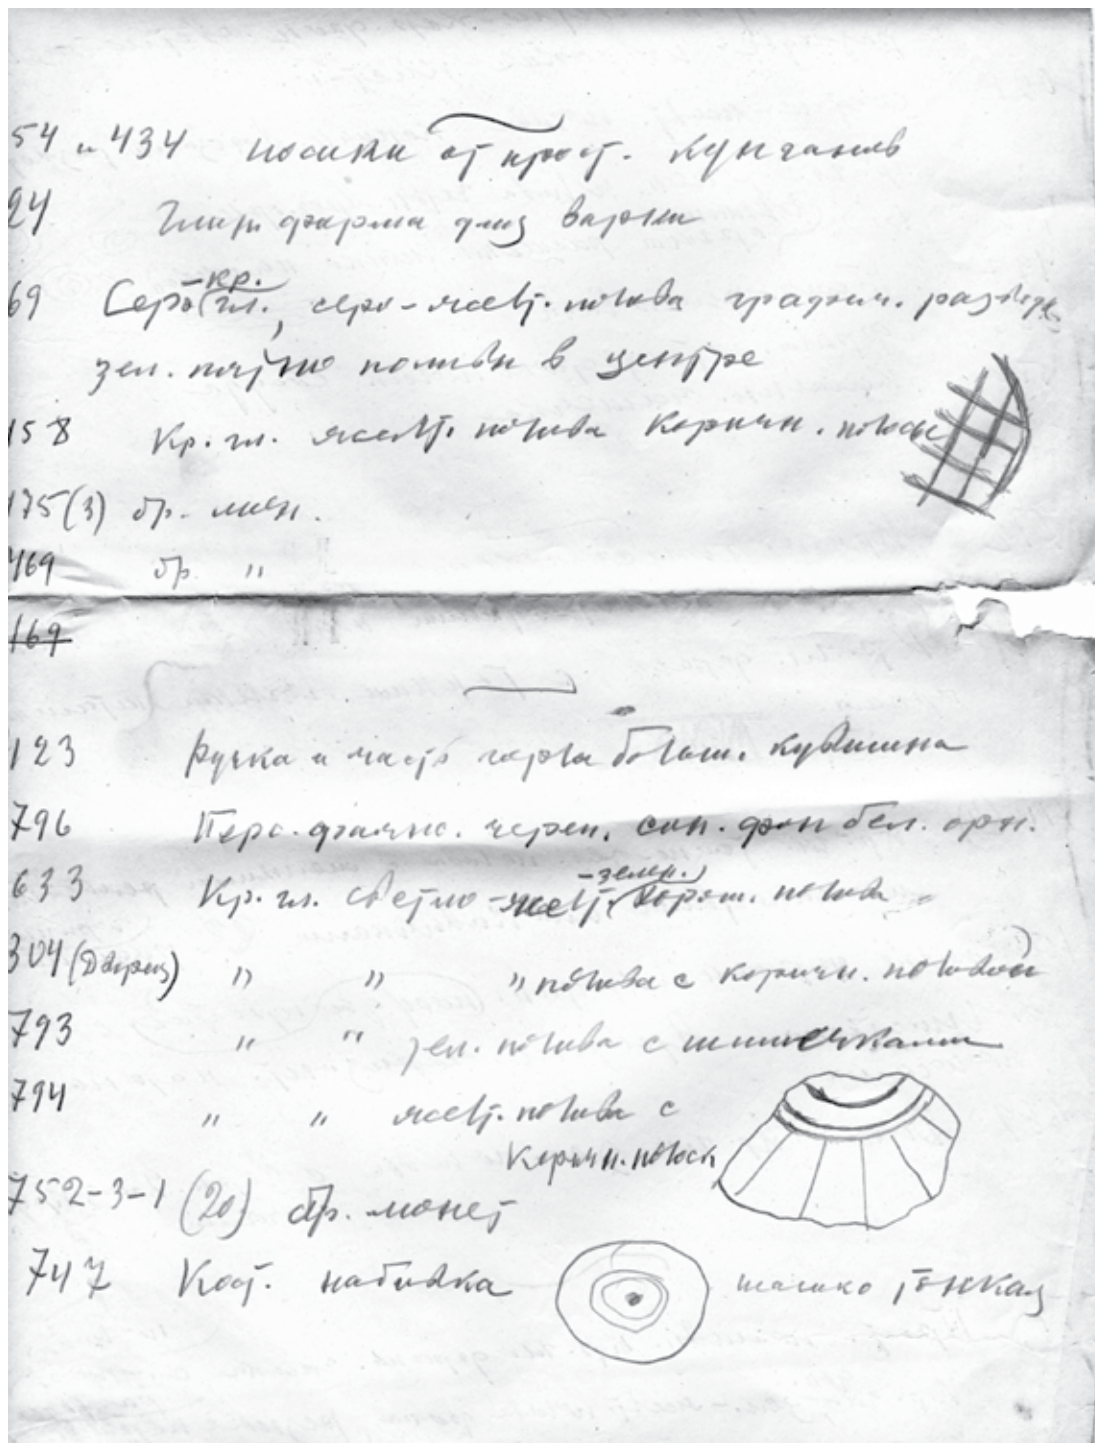 54 и 434 носики от прост. кумганов
24 Глин. форма для варки
69 Серо-кр. гл., серо-желт. полива графич. развод.
зел. пятно поливы в центре
158 Кр. гл. желт. полива коричн. полосы
175(3) бр. мон.
469 бр. "
169
123 Ручка и часть горла больш. кувшина
796 Перс. фаянс. череп. син. фон бел. орн.
633 Кр. гл. светло-желт.-зелен. хорош. полива
304 (Дворец) " " " полива с коричн. поливой
793 " " зел. полива с шишечками
794 " " желт. полива с
коричн. полоск
752-3-1 (20) бр. монет
747 Кост. набивка тонкая